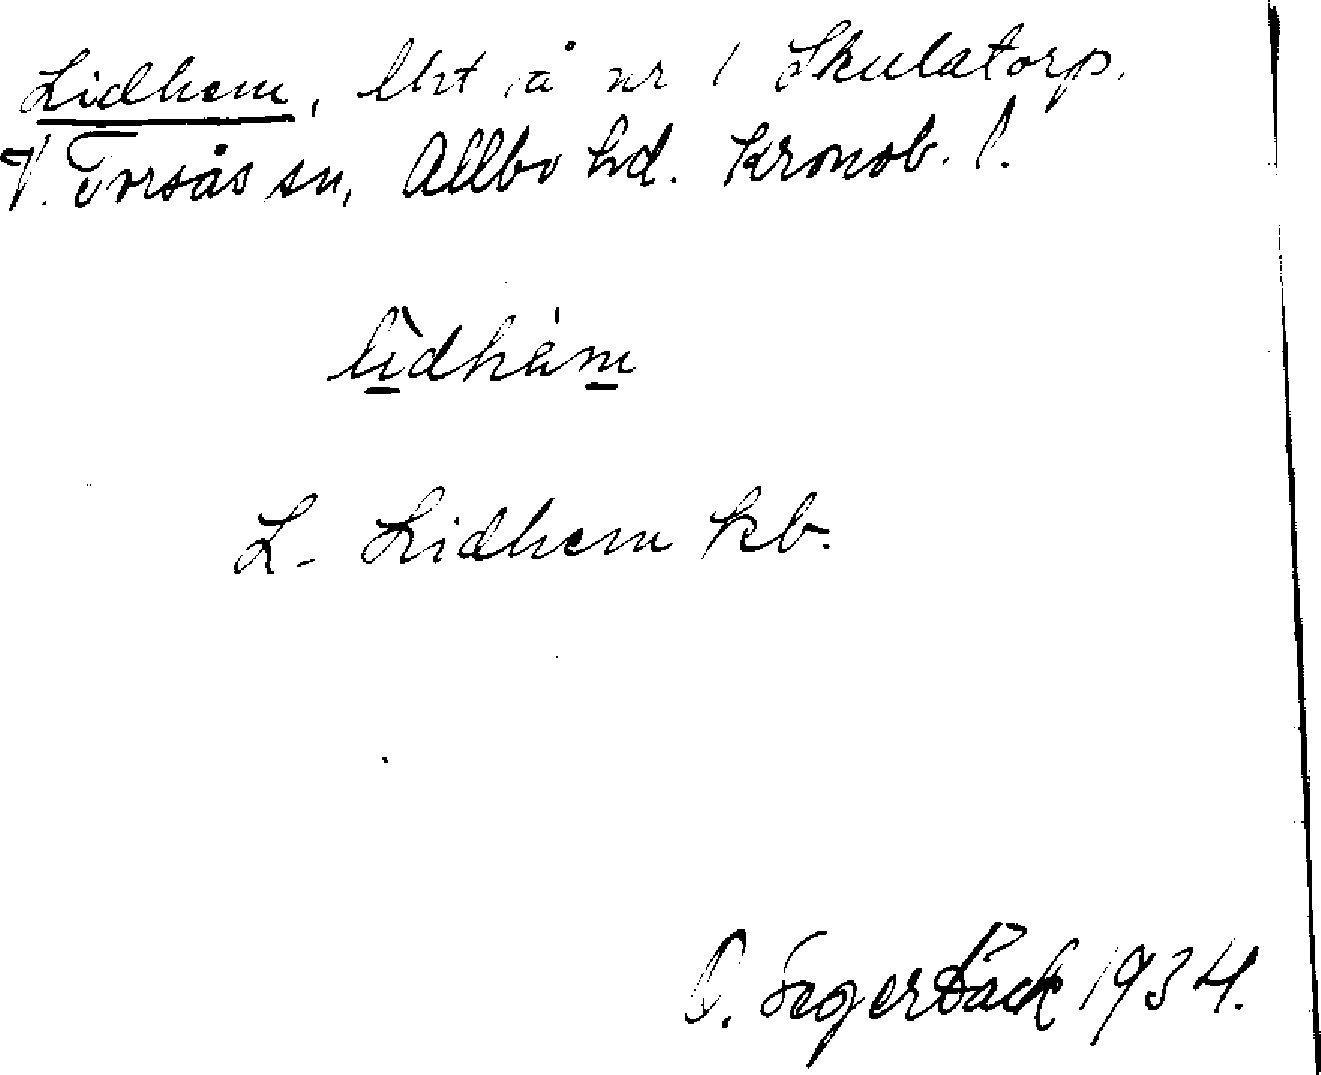 Lidhem, lht å nr 1 Skulatorp.
V. Torsås sn, Allbo hd. Kronob. l.
lìdhèm
L- Lidhem kb.
Segerbäck 1934.